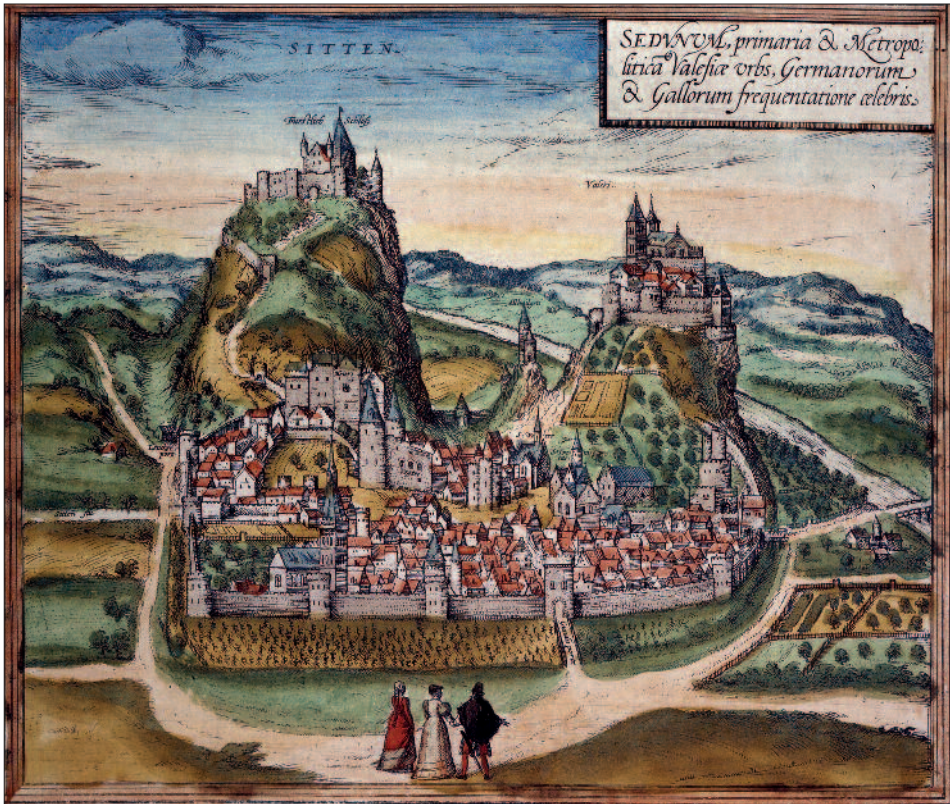 SITTEN.
SEDVNVM, primaria & Metropo:
litica Valesiæ vrbs, Germanorum
& Gallorum frequentatione celebris.
Schloß
Valeri.